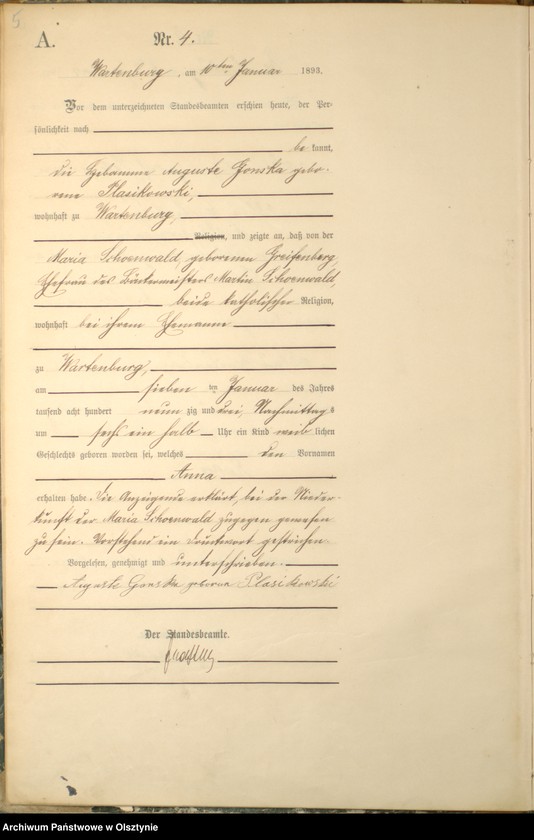 5
A.
Nr. 4.
Wartenburg, am 10ten Januar 1893.
Vor dem unterzeichneten Standesbeamten erschien heute, der Per-
sönlichkeit nach
be kannt,
die Hebamme Auguste Gonska gebo-
rene Plasikowski,
wohnhaft zu Wartenburg,
Religion, und zeigte an, daß von der
Maria Schoenwald, geborenen Greifenberg,
Ehefrau des Bäckermeisters Martin Schoenwald,
beide katholischer Religion,
wohnhaft bei ihrem Ehemanne
zu Wartenburg,
am sieben ten Januar des Jahres
tausend acht hundert neun zig und drei, Nachmittags
um sechs ein halb Uhr ein Kind weib lichen
Geschlechts geboren worden sei, welches den Vornamen
Anna
erhalten habe. Die Anzeigende erklärt, bei der Nieder-
kunft der Maria Schoenwald zugegen gewesen
zu sein. Vorstehend ein Druckwort gestrichen.
Vorgelesen, genehmigt und unterschrieben.
Auguste Gonska geborene Plasikowski
Der Standesbeamte.
Archiwum Państwowe w Olsztynie